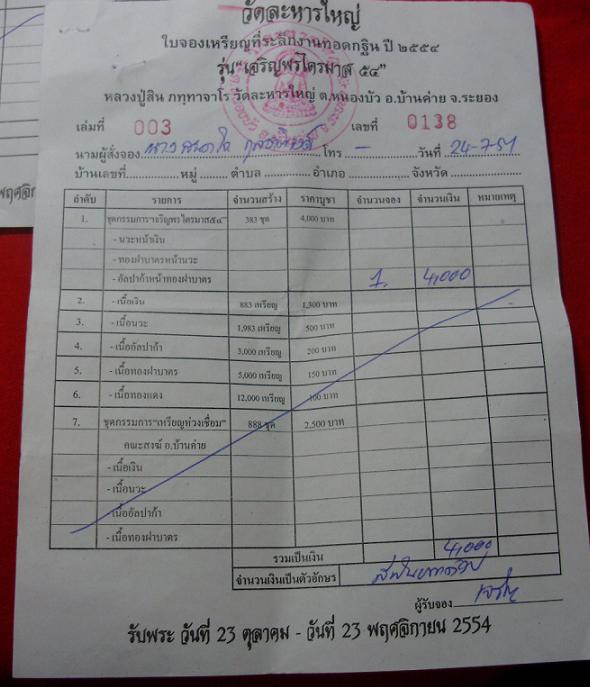 วัดละหารใหญ่
ใบจองเหรียญที่ระลึกงานทอดกฐิน ปี ๒๕๕๔
รุ่น"เจริญพรไตรมาส ๕๔"
หลวงปู่สิน ภทฺทาจาโร วัดละหารใหญ่ ต.หนองบัว อ.บ้านค่าย จ.ระยอง
เล่มที่ 003 เลขที่ 0138
นามผู้สั่งจอง นาง โทร – วันที่ 24-7-54
บ้านเลขที่ หมู่ ตำบล อำเภอ จังหวัด
ลำดับ รายการ จำนวนสร้าง ราคาบูชา จำนวนจอง จำนวนเงิน หมายเหตุ
1. ชุดกรรมการ"เจริญพรไตรมาส๕๔" 383 ชุด 4,000 บาท
- นวะหน้าเงิน
- ทองฝาบาตรหน้านวะ
- อัลปาก้าหน้าทองฝาบาตร 1. 4,000
2. - เนื้อเงิน 883 เหรียญ 1,300 บาท
3. - เนื้อนวะ 1,983 เหรียญ 500 บาท
4. - เนื้ออัลปาก้า 3,000 เหรียญ 200 บาท
5. - เนื้อทองฝาบาตร 5,000 เหรียญ 150 บาท
6. - เนื้อทองแดง 12,000 เหรียญ 100 บาท
7. ชุดกรรมการ"เหรียญห่วงเชื่อม" 888 ชุด 2,500 บาท
คณะสงฆ์ อ.บ้านค่าย
- เนื้อเงิน
- เนื้อนวะ
- เนื้ออัลปาก้า
- เนื้อทองฝาบาตร
รวมเป็นเงิน 4,000
จำนวนเงินเป็นตัวอักษร สี่พันบาทถ้วน
ผู้รับจอง
รับพระ วันที่ 23 ตุลาคม - วันที่ 23 พฤศจิกายน 2554